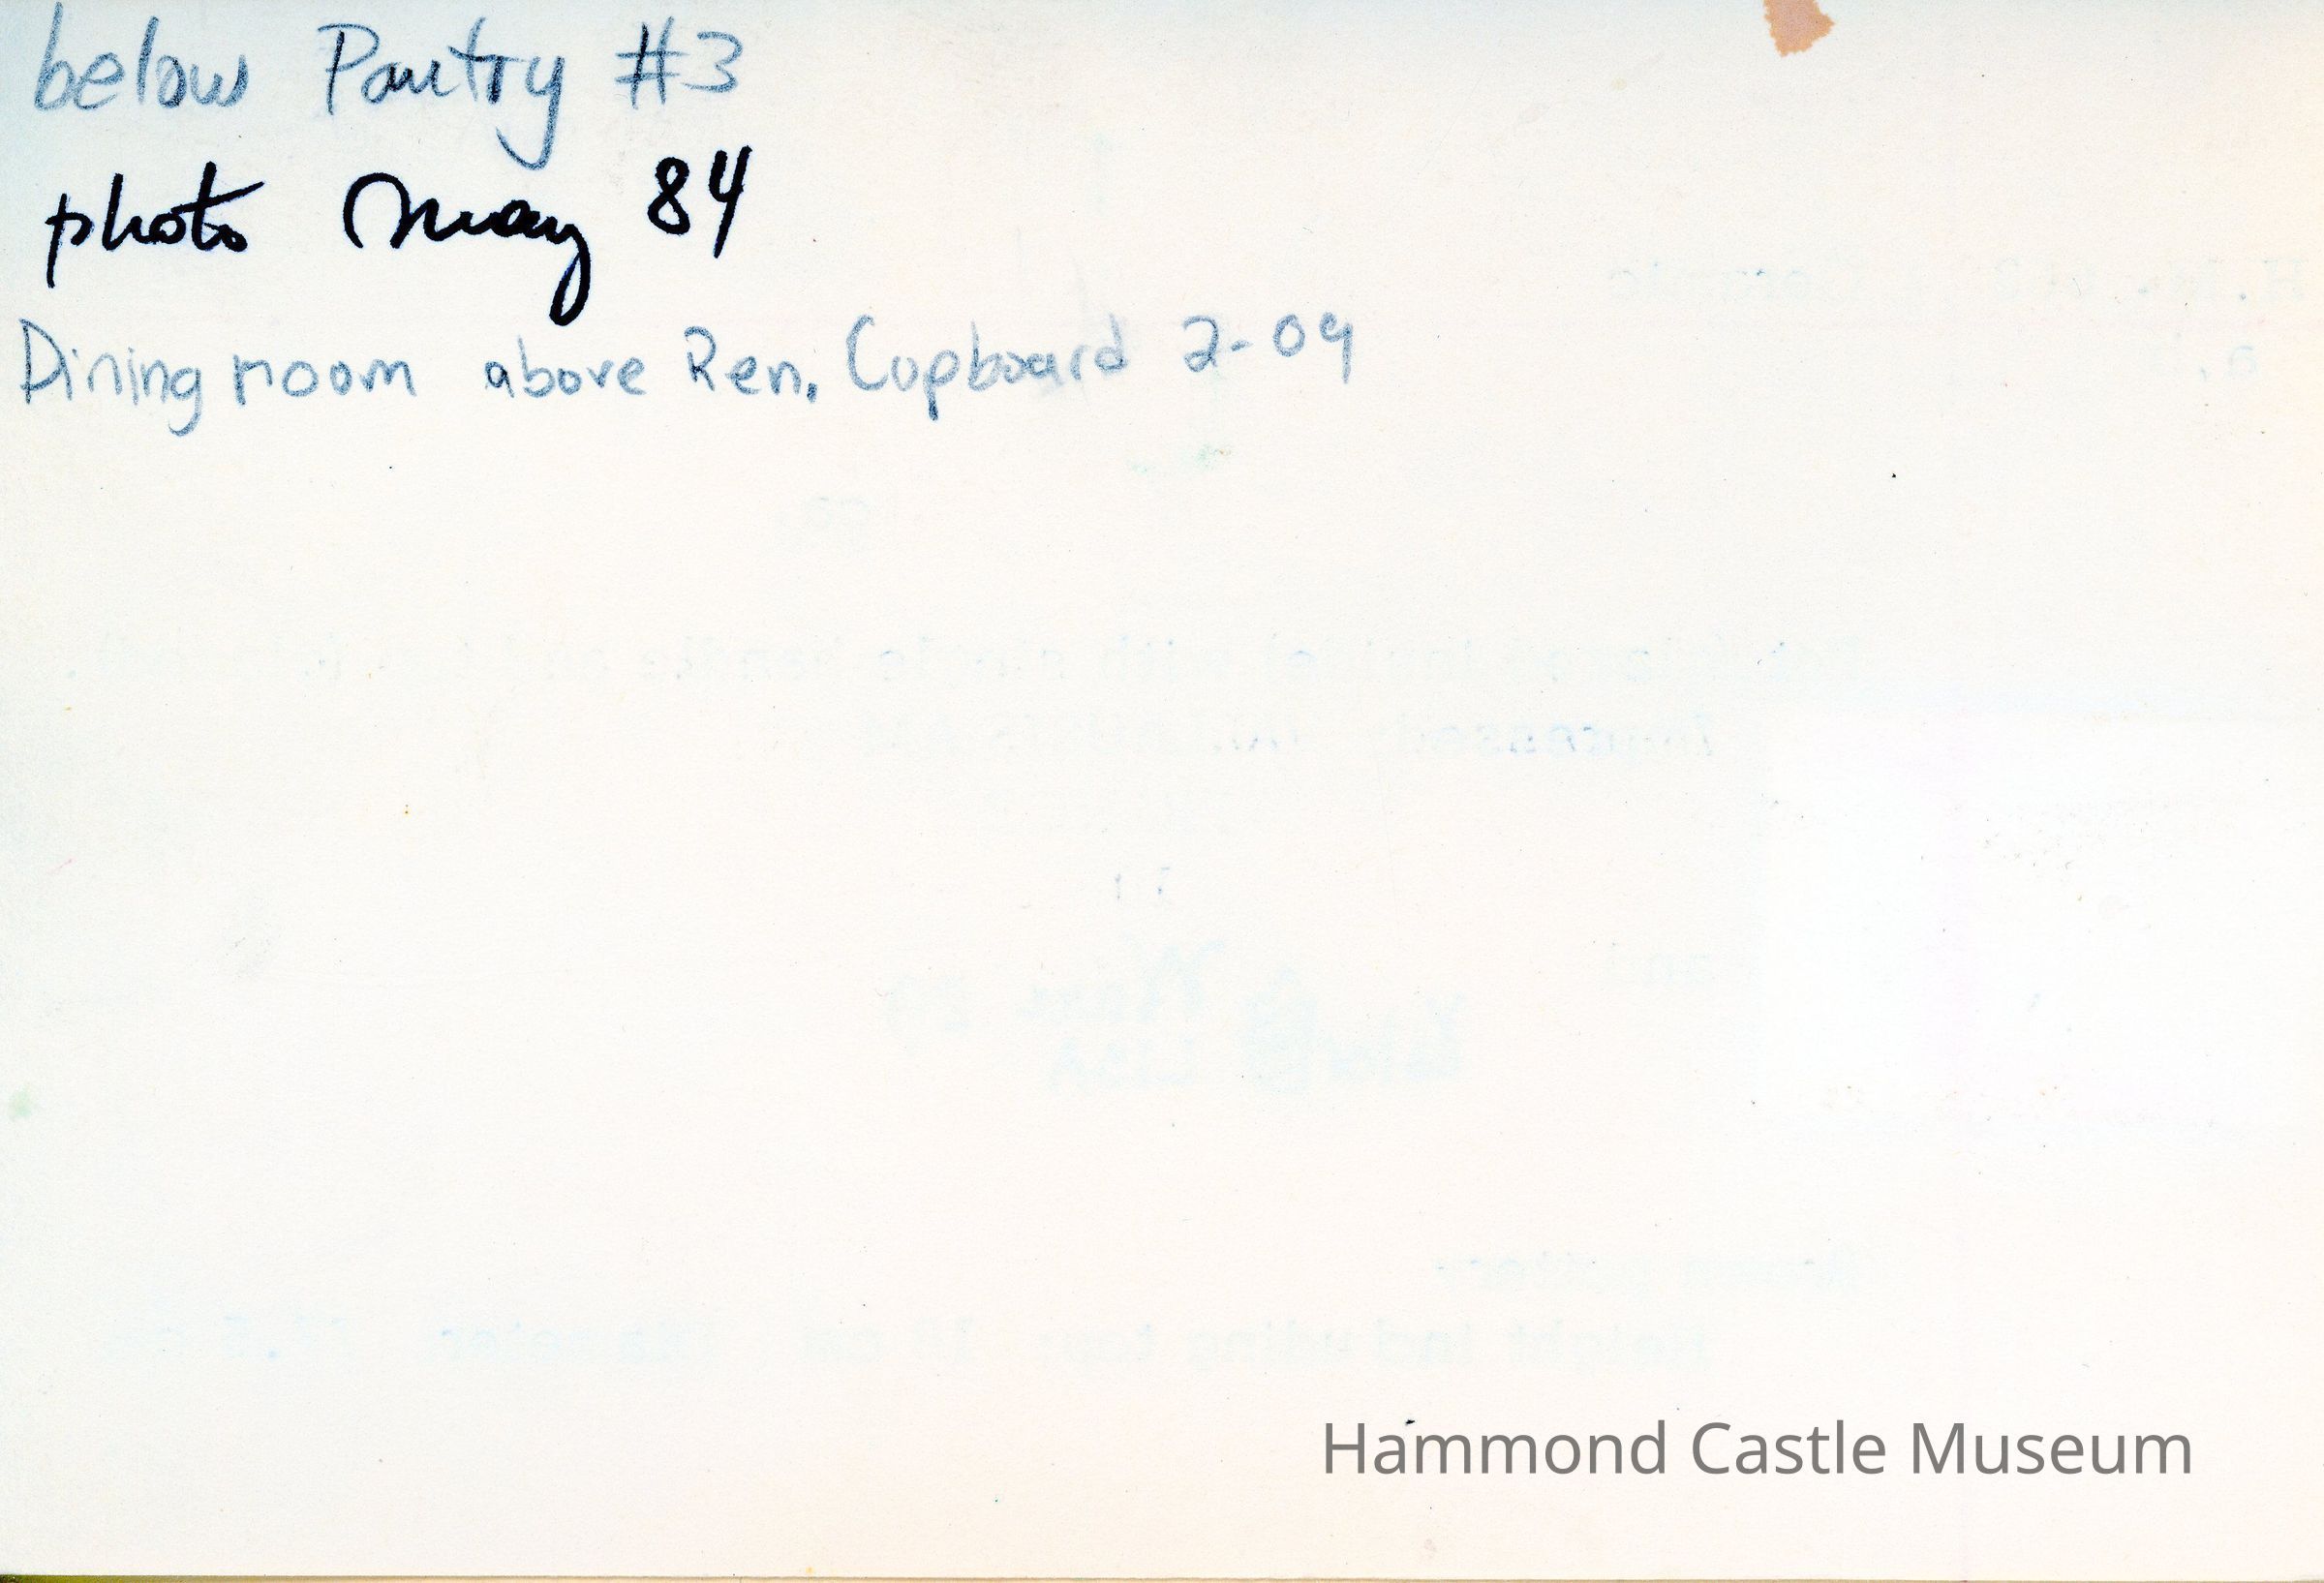 below Pantry #3
photo May 84
Dining room above Ren. Cupboard 2-09
Hammond Castle Museum